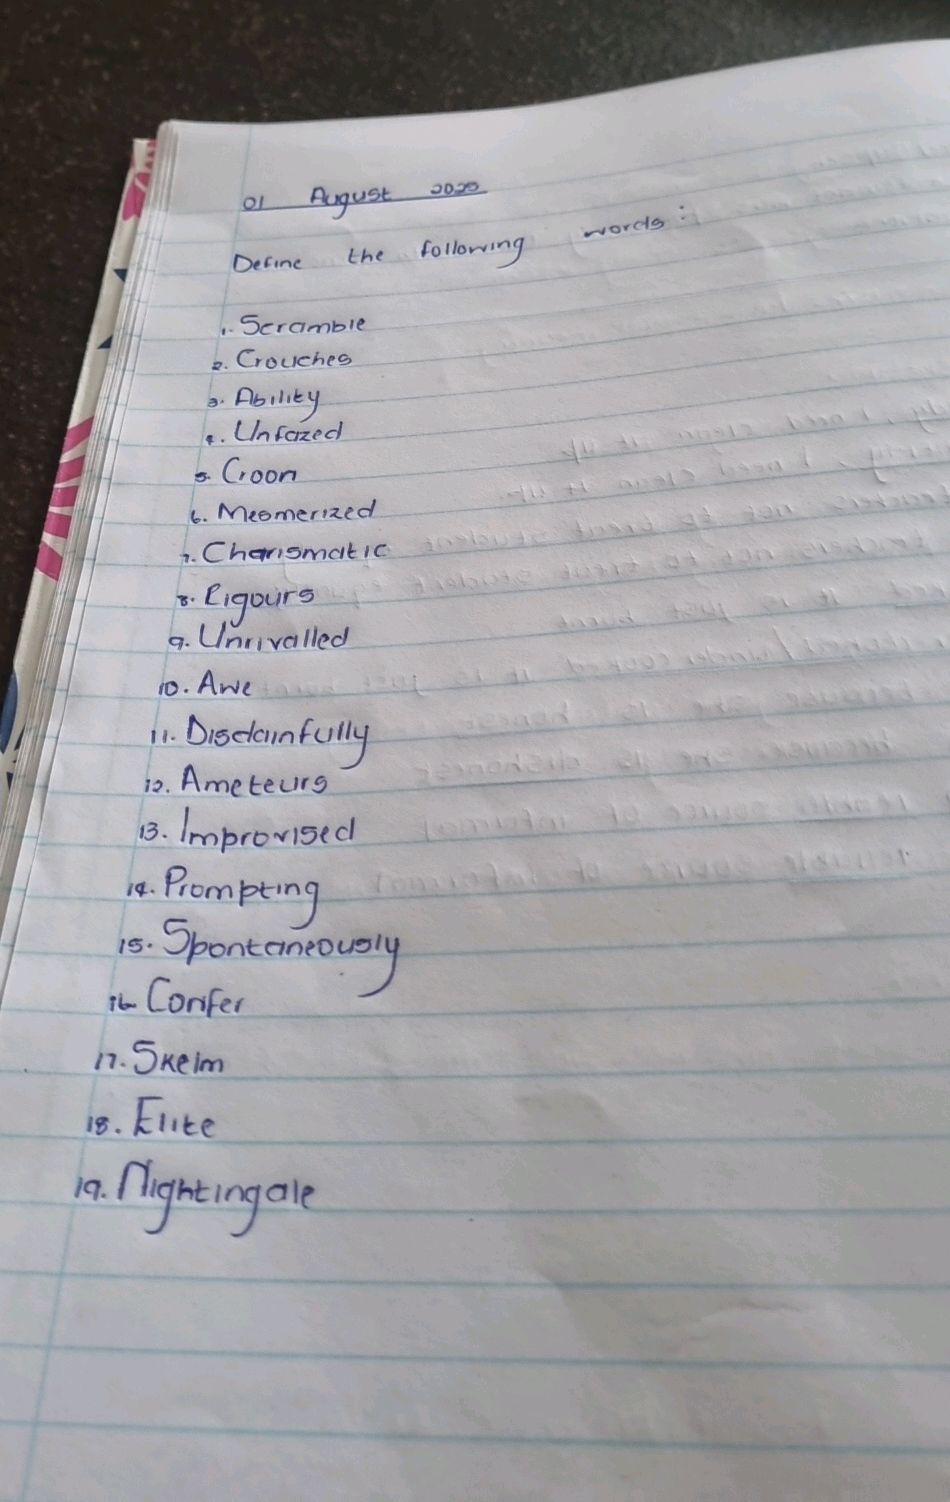 01 August 2020
Define the following words:
1. Scramble
2. Crouches
3. Ability
4. Unfazed
5. Croon
6. Mesmerized
7. Charismatic
8. Rigours
9. Unrivalled
10. Awe
11. Disdainfully
12. Ameteurs
13. Improvised
14. Prompting
15. Spontaneously
16. Conifer
17. Skeim
18. Elite
19. Nightingale